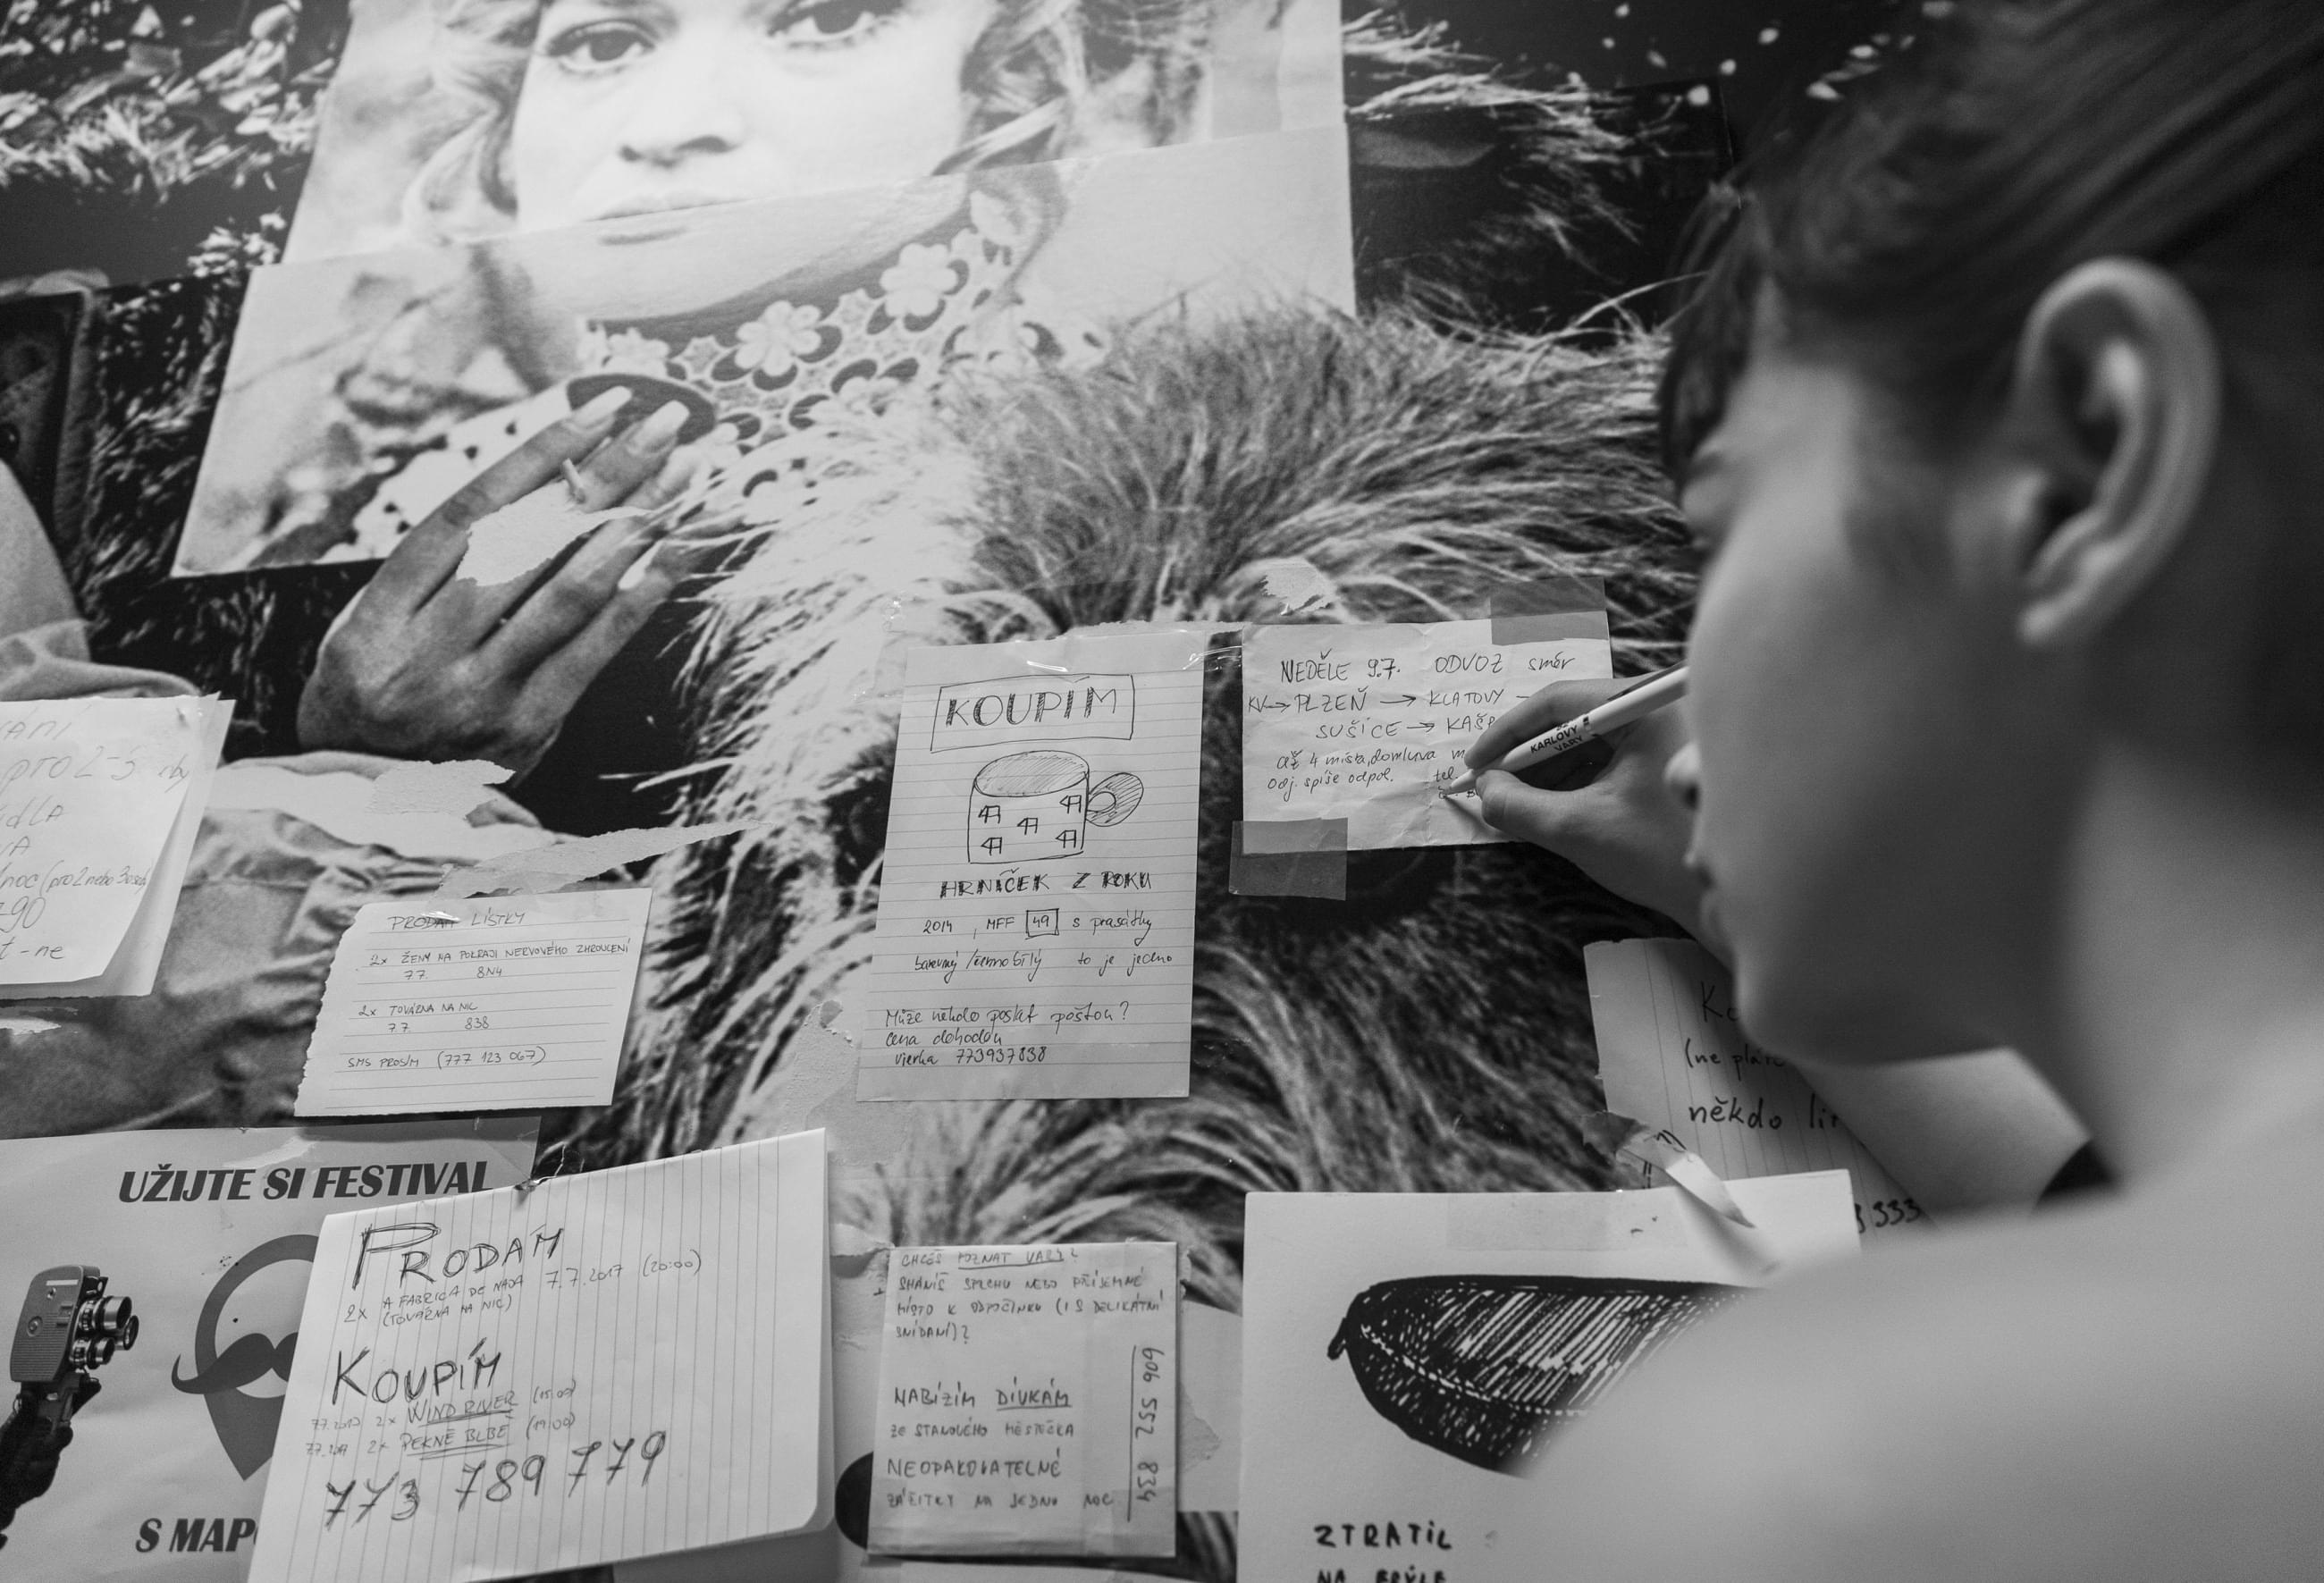 pro 2-3
noc (pro 2 nebo 3 osoby)
PRODÁM LÍSTKY
2x ŽENY NA POKRAJI NERVOVÉHO ZHROUCENÍ
7.7. 8N4
2x TOVÁRNA NA NIC
7.7 838
SMS PROSÍM (777 123 067)
KOUPÍM
HRNÍČEK Z ROKU
2014, MFF 49 s prasátky
barevný/černobílý to je jedno
Může někdo poslat poštou?
cena dohodou
Vierka 773937838
NEDĚLE 9.7. ODVOZ směr
KV → PLZEŇ → KLATOVY →
SUŠICE → KAŠP
až 4 místa, domluva
Odj. spíše odpol. tel.
KARLOVY
VARY
(ne
někdo
333
UŽIJTE SI FESTIVAL
S MAP
PRODÁM
2x A FABRICA DE NADA 7.7.2017 (20:00)
(TOVÁRNA NA NIC)
KOUPÍM
7.7.2017 2x WIND RIVER (15:00)
7.7.2017 2x PĚKNĚ BLBĚ (19:00)
773 789 779
CHCEŠ POZNAT VARY?
SHÁNÍŠ SPRCHU NEBO PŘÍJEMNÉ
MÍSTO K ODPOČINKU (I S DELIKÁTNÍ
SNÍDANÍ)?
NABÍZÍM DÍVKÁM
ZE STANOVÉHO MĚSTEČKA
NEOPAKOVATELNÉ
ZÁŽITKY NA JEDNU NOC
606 552 834
ZTRATIL
NA BRÝLE